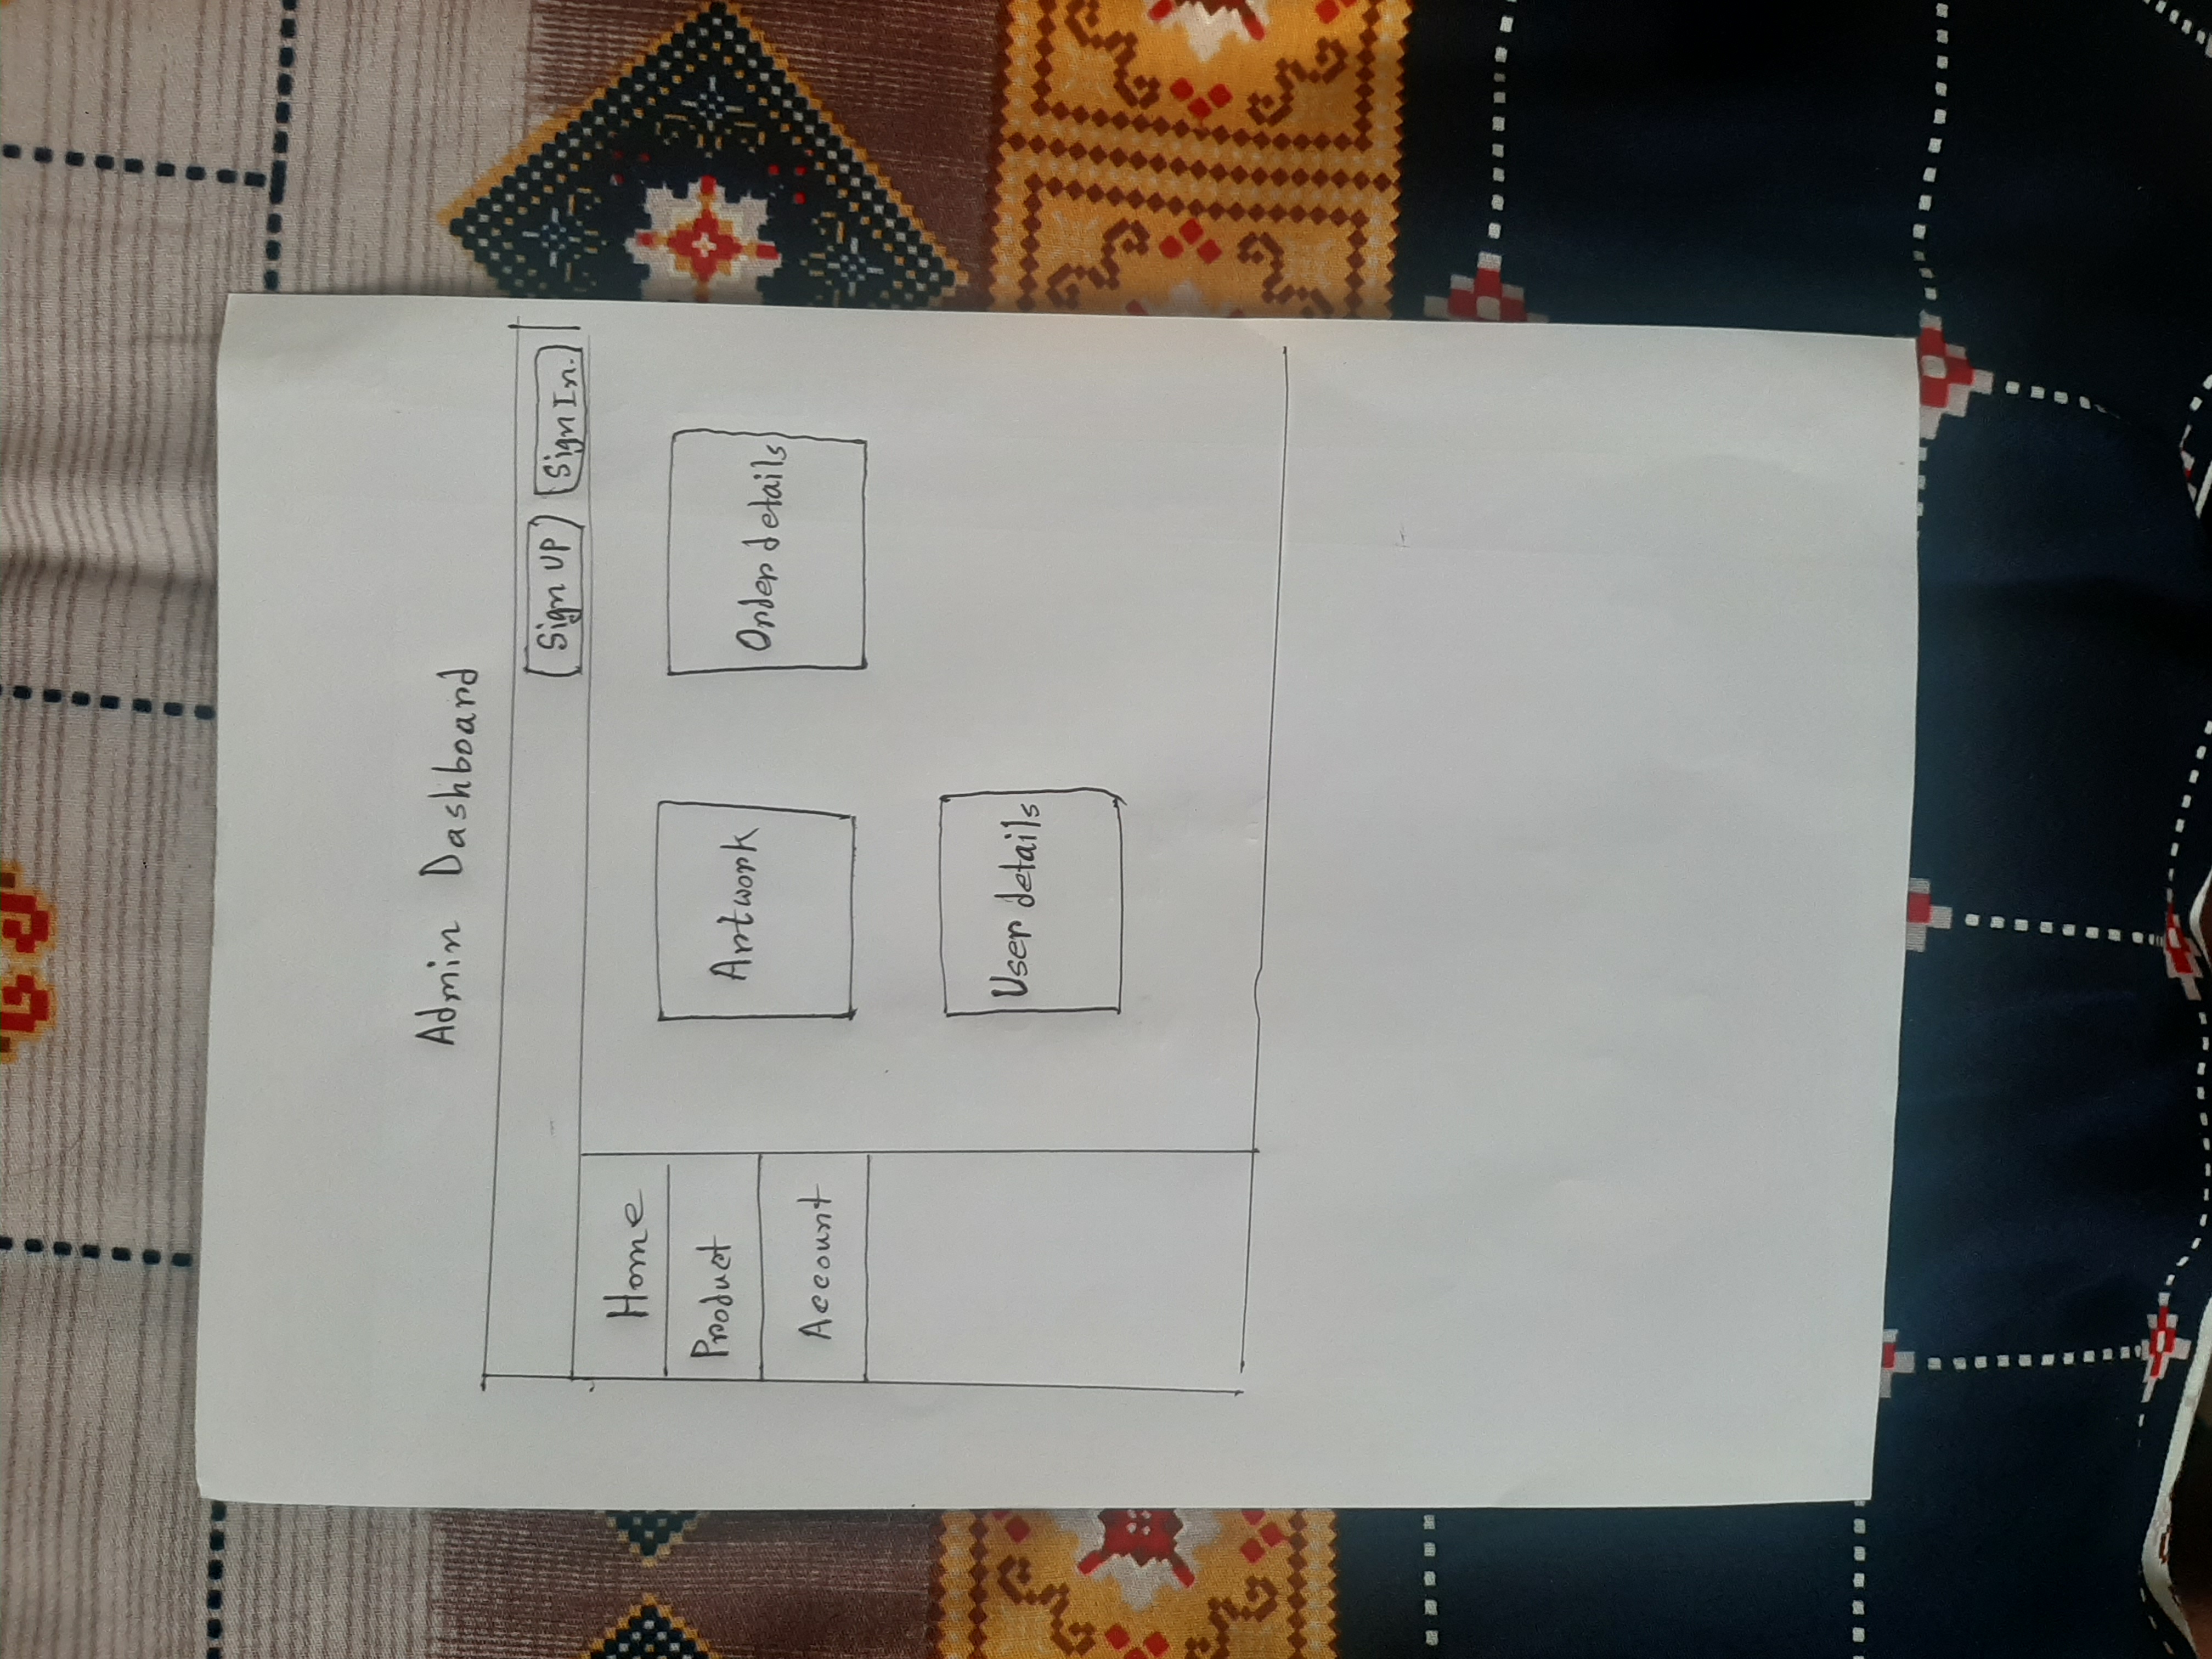 Admin Dashboard
Sign UP Sign In.
Home
Product
Account
Artwork
Order details
User details